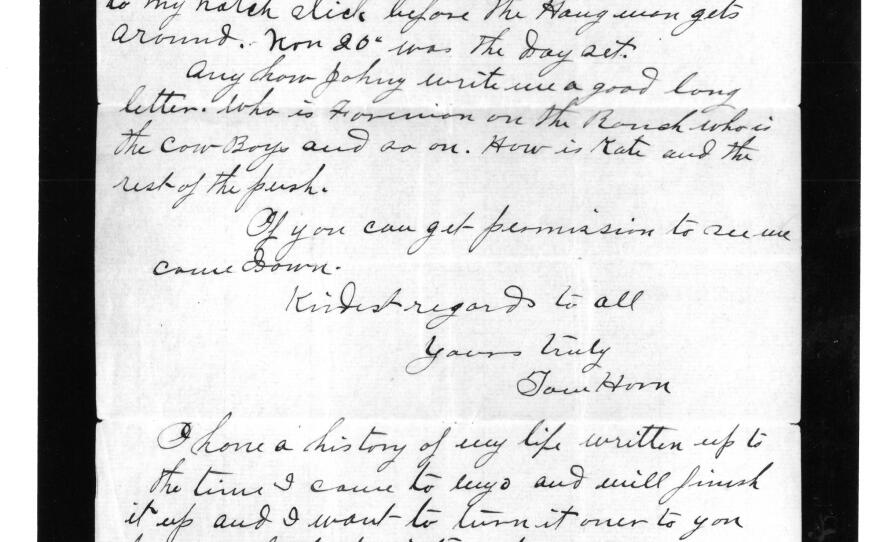 to my notch stick before the Hangman gets
around. Nov 20" was the Day set.
Any how Johny write me a good long
letter. Who is Foreman on the Ranch who is
the Cow Boys and so on. How is Kate and the
rest of the push.
If you can get permission to see me
come Down.
Kindest regards to all
Yours truly
Tom Horn
I have a history of my life written up to
the time I came to Wyo and will finish
it up and I want to turn it over to you